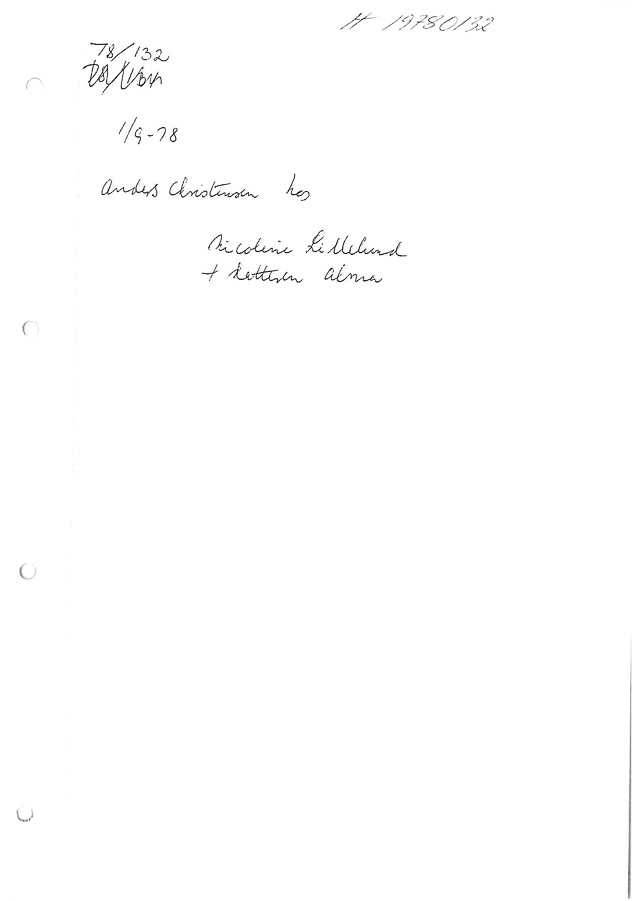 H 19780132
78/132
1/9-78
Anders Christensen hos
Nicoline Lillelund
+ datteren Alma